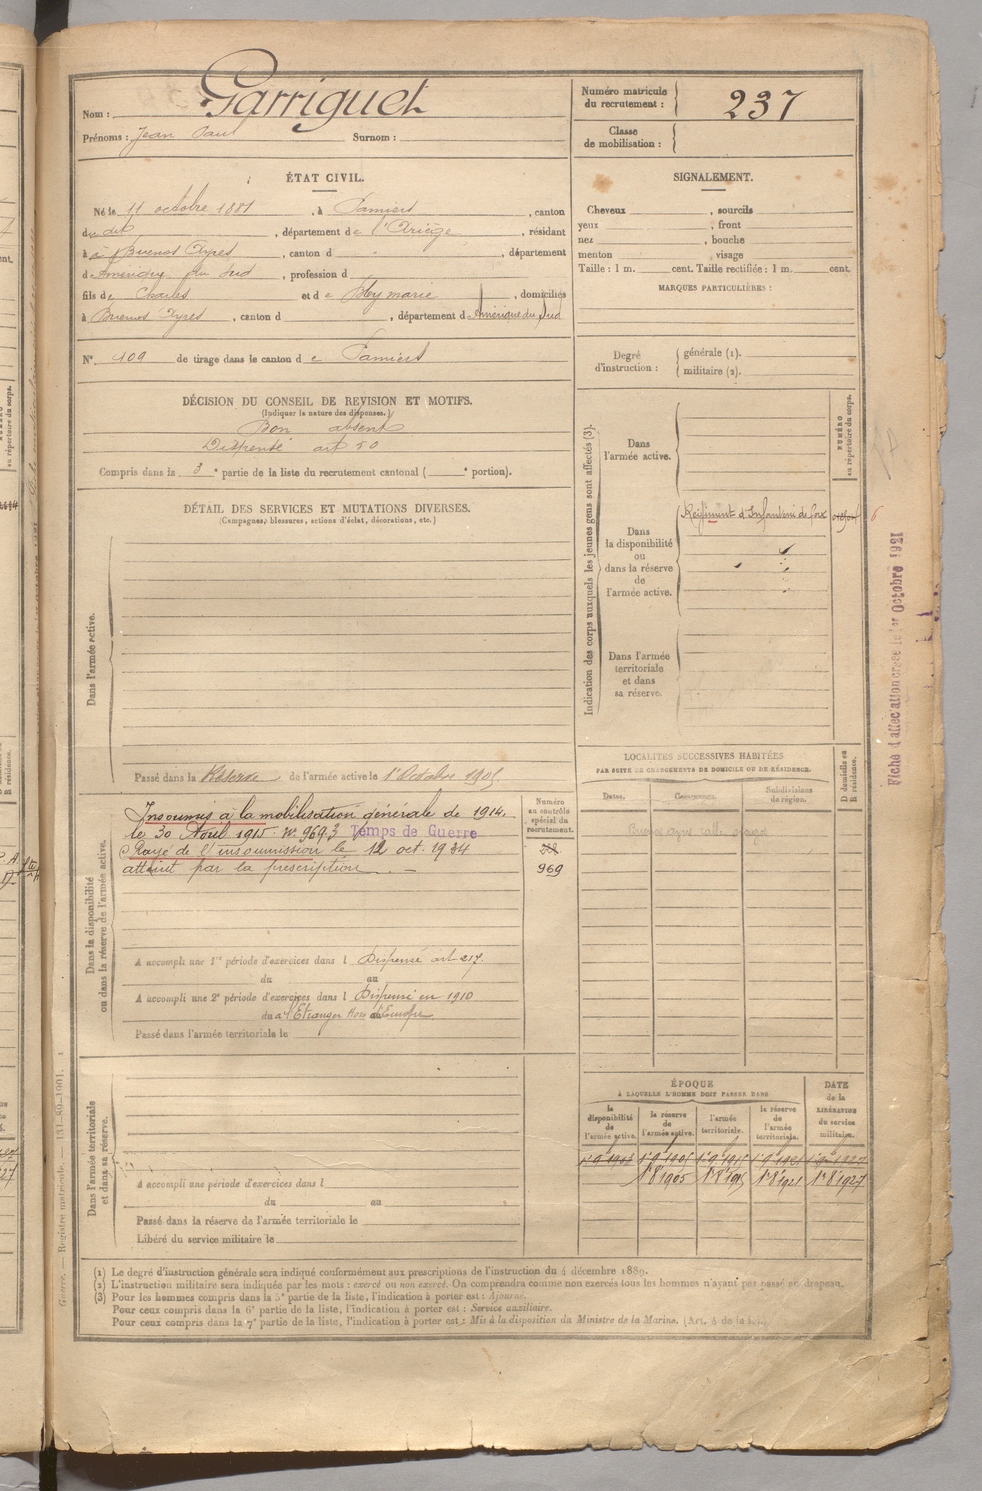 Nom : Garriguet
Prénoms : Jean Paul Surnom :
Numéro matricule du recrutement : 237
Classe de mobilisation :
ÉTAT CIVIL.
Né le 11 octobre 1881, à Pamiers, canton
du dit, département de l'Ariège, résidant
à à Buenos Ayres, canton d, département
d'Amérique du Sud, profession d
fils de Charles et de Rey marie, domiciliés
à Buenos Ayres, canton d, département d Amérique du Sud
N° 109 de tirage dans le canton d e Pamiers
SIGNALEMENT.
Cheveux, sourcils
yeux, front
nez, bouche
menton visage
Taille : 1 m. cent. Taille rectifiée : 1 m. cent.
MARQUES PARTICULIÈRES :
Degré d'instruction : générale (1).
militaire (2).
DÉCISION DU CONSEIL DE REVISION ET MOTIFS.
(Indiquer la nature des dispenses.)
Bon absent
Dispensé art 50
Compris dans la 3e partie de la liste du recrutement cantonal (e portion).
DÉTAIL DES SERVICES ET MUTATIONS DIVERSES.
(Campagnes, blessures, actions d'éclat, décorations, etc.)
Dans l'armée active.
Passé dans la Réserve de l'armée active le 1er Octobre 1905
Indication des corps auxquels les jeunes gens sont affectés (3).
NUMÉRO au répertoire du corps.
Dans l'armée active.
Dans la disponibilité ou dans la réserve de l'armée active.
Régiment d'Infanterie de Foix
6
Dans l'armée territoriale et dans sa réserve.
Fiche d'affectation créée le 1er Octobre 1921
Dans la disponibilité ou dans la réserve de l'armée active.
Numéro au contrôle spécial du recrutement.
Insoumis à la mobilisation générale de 1914.
le 30 Avril 1915. N° 9693 Temps de Guerre
Rayé de l'insoumission le 12 oct. 1934
atteint par la prescription. —
969
A accompli une 1re période d'exercices dans l Dispensé art 217.
du au
A accompli une 2e période d'exercices dans l Dispensé en 1910
du a l'Etranger Hors d'Europe
Passé dans l'armée territoriale le
LOCALITÉS SUCCESSIVES HABITÉES
PAR SUITE DE CHANGEMENTS DE DOMICILE OU DE RÉSIDENCE.
Dates. Communes. Subdivisions de région. D domicile ou R résidence.
Buenos ayres calle
Dans l'armée territoriale et dans sa réserve.
A accompli une période d'exercices dans l
du au
Passé dans la réserve de l'armée territoriale le
Libéré du service militaire le
ÉPOQUE
À LAQUELLE L'HOMME DOIT PASSER DANS
la disponibilité de l'armée active.
la réserve de l'armée active.
l'armée territoriale.
la réserve de l'armée territoriale.
DATE de la LIBÉRATION du service militaire.
1er 8 1905 1er 8 1915 1er 8 1921 1er 8 1927
(1) Le degré d'instruction générale sera indiqué conformément aux prescriptions de l'instruction du 4 décembre 1889.
(2) L'instruction militaire sera indiquée par les mots : exercé ou non exercé. On comprendra comme non exercés tous les hommes n'ayant pas passé au drapeau.
(3) Pour les hommes compris dans la 5e partie de la liste, l'indication à porter est : Ajourné.
Pour ceux compris dans la 6e partie de la liste, l'indication à porter est : Service auxiliaire.
Pour ceux compris dans la 7e partie de la liste, l'indication à porter est : Mis à la disposition du Ministre de la Marine. (Art. 4 de la loi.)
Guerre. — Registre matricule. — 131-89-1901.